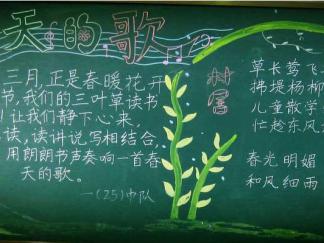 天的歌
三月,正是春暖花开
节,我们的三叶草读书
!让我们静下心来,
读,读讲说写相结合,
用朗朗书声奏响一首春
天的歌。
一(25)中队
村居
草长莺飞
拂堤杨柳
儿童散学
忙趁东风
春光明媚
和风细雨